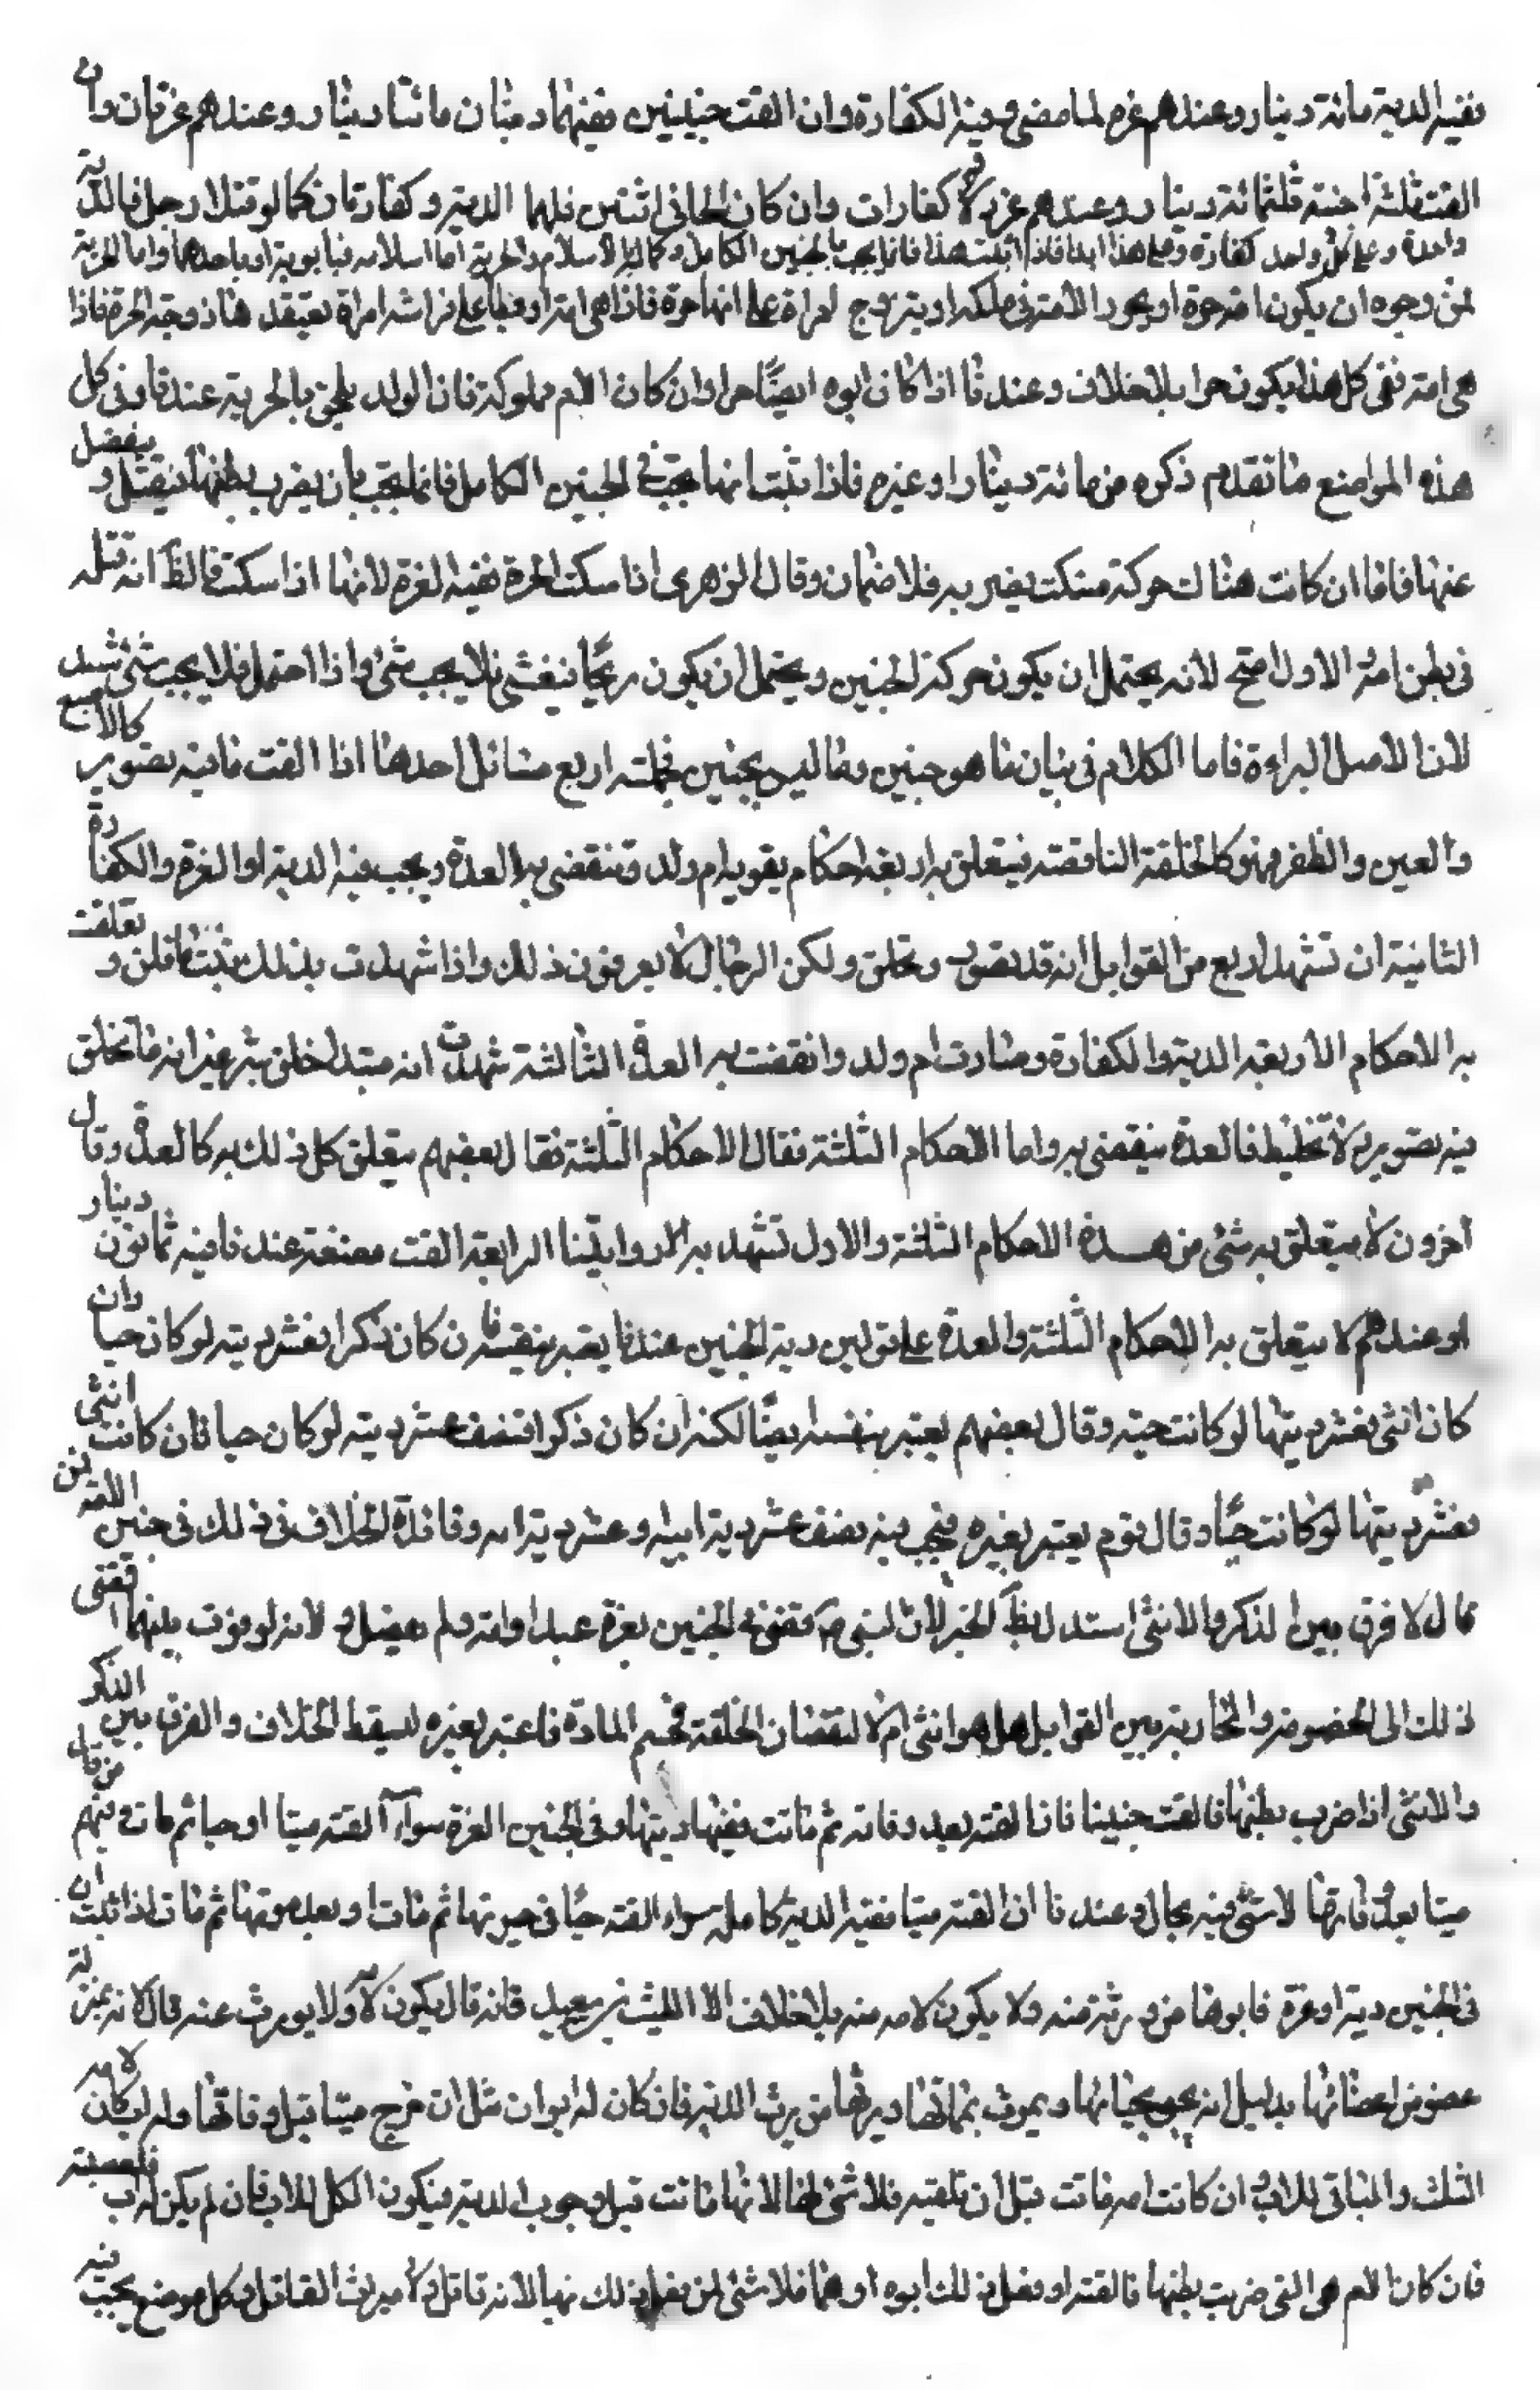 ففيه الدية مائة دينار وعندهم غرم لما مضى وفيه الكفارة وان القت جنينين ففيهما ديتان مائتا دينار وعندهم غرتان وان
القت ثلثة اجنة فثلثمائة دينار وعندهم غرر وثلاث كفارات وان كان الجاني اثنين فلهما الدية وكفارتان كما لو قتلا رجلا فالدية
واحدة وعلى كل واحد كفارة وعلى هذا ابدا فاذا ثبت هذا فانما يجب بالجنين الكامل وكماله بالاسلام والحرية اما اسلامه فبابويه او باحدهما واما الحرية
فمن وجوه ان يكون امه حرة او يحرر الامة في ملكه او يتزوج امراة على انها حرة فاذا هي امة او فيطأ على فراشه امراة يعتقد هنا زوجته الحرة فاذا
هي امة ففي كل هذا يكون حرا بلا خلاف وعندنا اذا كان ابوه ايضا حرا وان كان الام مملوكة فان الولد يلحق بالحرية عندنا وفي كل
هذه المواضع ما تقدم ذكره من مائة دينار او غيره فاذا ثبت انها يجب في الجنين الكامل فانما يجب بان يضرب بطنها فيقتل وينفصل
عنها فاما ان كانت هناك حركة فسكت بضربه فلا ضمان وقال الزهري اذا سكت الحركة ففيه الغرة لانها اذا سكت فالظ انه قتله
في بطن امه الاول اصح لانه يحتمل ان يكون حركة لجنين ويحتمل ان يكون ريحا فينفشي فلا يجب شئ واذا احتمل فلا يجب شئ بشك
لان الاصل البراءة فاما الكلام في بيان ما هو جنين وما ليس بجنين فجملته اربع مسائل احدها اذا القت ما فيه تصوير كالاصبع
والعين والظفر فهو كالخلقة الناقصة فيتعلق به اربعة احكام يقويه ام ولد وتنقضي به العدة ويجب فيه الدية او الغرة والكفارة
الثانية ان تشهد اربع من القوابل انه قد تصور وتخلق ولكن الرجال لا يعرفون ذلك واذا شهدت بذلك ثبت ما قلن وتعلقت
به الاحكام الاربعة الدية والكفارة وصارت ام ولد وانقضت به العدة الثالثة شهدن انه مبتدا خلق بشر غير انه ما تخلق
فيه تصوير ولا تخليط فالعدة ينقضي به واما الاحكام الثلثة فقال الاحكام الثلثة فقال بعضهم يتعلق كل ذلك به كالعدة وقال
اخرون لا يتعلق به شئ من هذه الاحكام الثلثة والاول تشهد به رواياتنا الرابعة القت مضغة عندنا فيه ثمانون دينار
او عندهم لا يتعلق به الاحكام الثلثة والعدة على قولين دية الجنين عندنا يعتبر بنفسه فان كان ذكرا فعشر ديته لو كان حيا وان
كان انثى فعشر ديتها لو كانت حية وقال بعضهم يعتبر بنفسه ايضا لكنه ان كان ذكرا فنصف عشر ديته لو كان حيا فان كانت انثى
فعشر ديتها لو كانت حيا وقال قوم يعتبر بغيره فيجب فيه نصف عشر دية ابيه وعشر دية امه وفائدة الخلاف في ذلك في جنين الامة فمن
قال لا فرق بين الذكر والانثى استدل بظ الخبر لان النبي ص قضى في الجنين بغرة عبد او امة ولم يفصل ولانه لو فرق بينهما افضى
ذلك الى الخصومة والمحاربة بين القوابل هل هو انثى ام لا لنقصان الخلقة فحسم المادة فاعتبر بغيره ليسقط الخلاف والفرق بين الذكر
والانثى اذا ضرب بطنها فالقت جنينا فاذا القته بعد وفاته ثم ماتت ففيها ديتها وفي الجنين الغرة سواء القته ميتا او حيا ثم مات وفيهم من قال
ميتا بعد وفاتها لا شئ فيه بحال وعندنا ان القته ميتا ففيه الدية كاملة سواء القته حيا في حيوتها ثم مات او بعد موتها ثم مات اذا ثبت ان
في الجنين دية او غرة فابوها من ورثته منه ولا يكون لامه منه بلا خلاف الا الليث بن سعيد فانه قال يكون لامه ولا يورث عنه قال لانه بمنزلة
عضو من اعضائها بدليل انه يحيى بحياتها ويموت بمماتها ويرثها من يرث الدية فان كان له ابوان مثل ان خرج ميتا قبل وفاتها وله اب كان لامه
الثلث والباقي للاب ان كانت امه ماتت قبل ان تلقيه فلا شئ لها لانها ماتت قبل وجوب الدية فيكون الكل للاب فان لم يكن له اب فلعصبته
فان كان الام هي التي ضربت بطنها فالقته او فعل ذلك ابوه او هما فلا شئ لمن فعل ذلك فيها لانه قاتل ولا ميراث القاتل وكل موضع يجب فيه